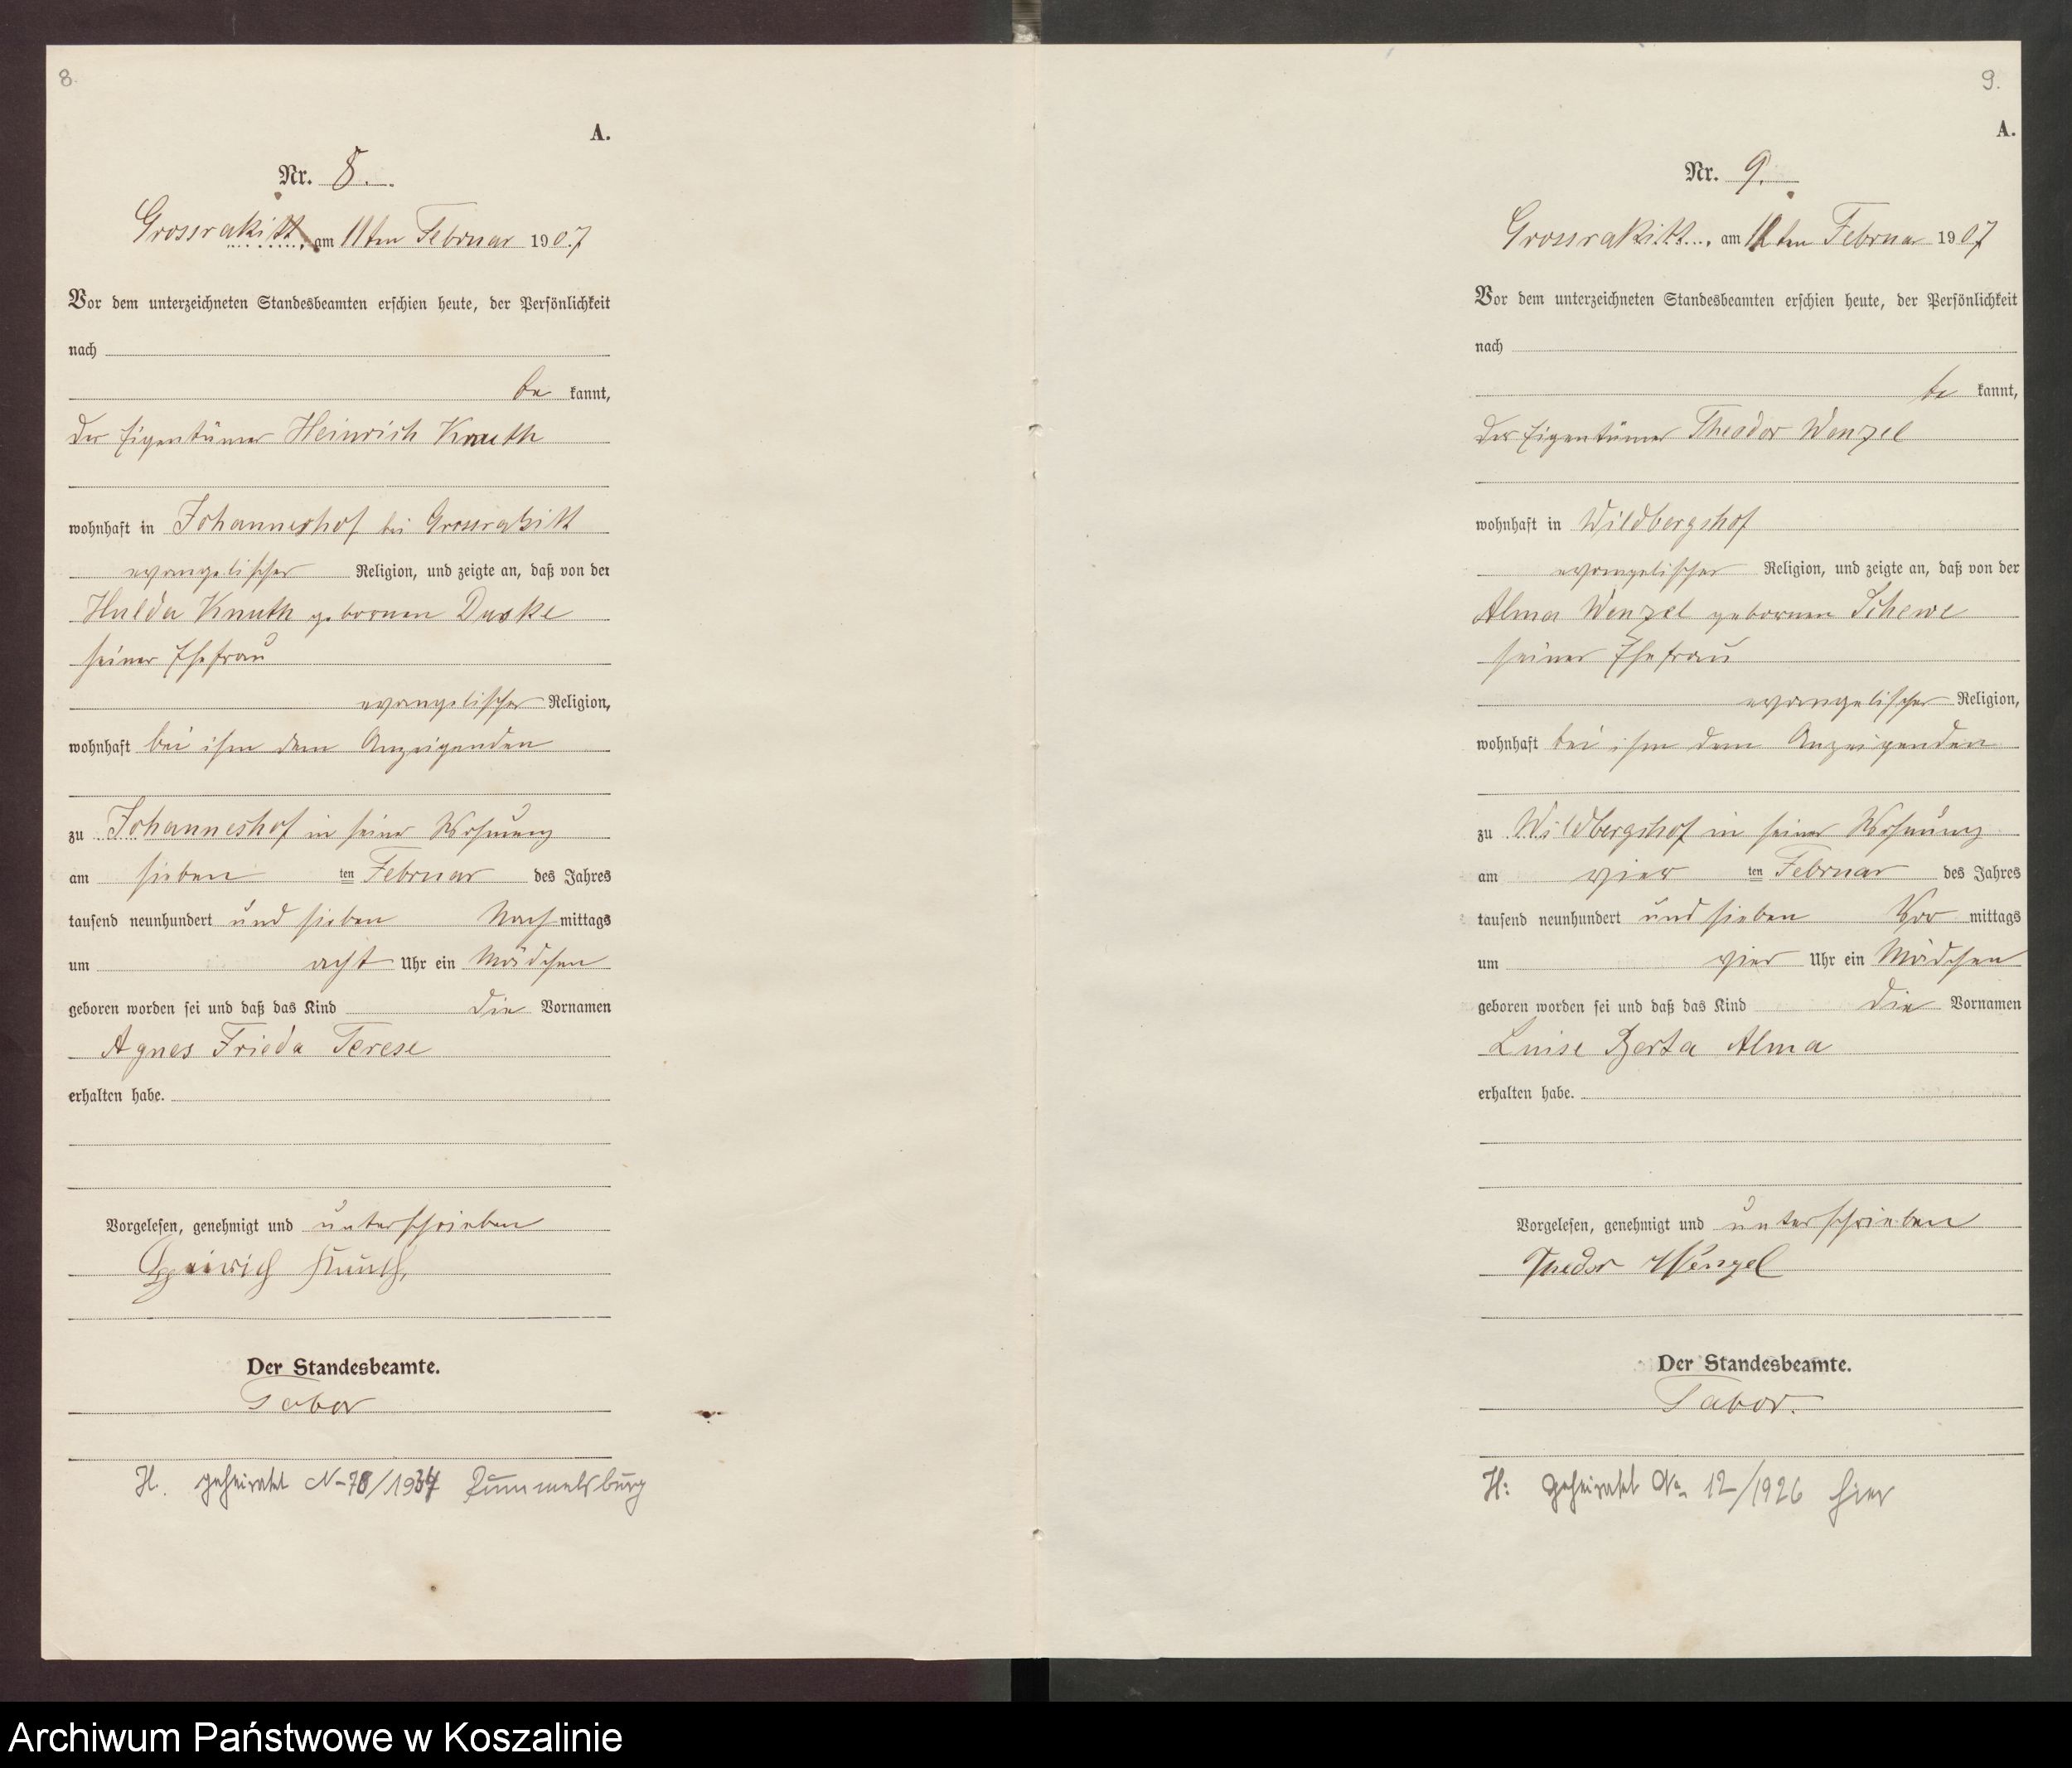 8.
A.
Nr. 8.
Grossrakitt, am 11ten Februar 1907
Vor dem unterzeichneten Standesbeamten erschien heute, der Persönlichkeit
nach
be kannt,
der Eigentümer Heinrich Knuth
wohnhaft in Johanneshof bei Grossrakitt
evangelischer Religion, und zeigte an, daß von der
Hulda Knuth geborenen Daske
seiner Ehefrau
evangelischer Religion,
wohnhaft bei ihm dem Anzeigenden
zu Johanneshof in seiner Wohnung
am sieben ten Februar des Jahres
tausend neunhundert und sieben Nach mittags
um acht Uhr ein Mädchen
geboren worden sei und daß das Kind die Vornamen
Agnes Frieda Terese
erhalten habe.
Vorgelesen, genehmigt und unterschrieben
Heinrich Knuth,
Der Standesbeamte.
Tabor
H. geheiratet No 78/1934 Rummelsburg
9.
A.
Nr. 9.
Grossrakitt, am 11ten Februar 1907
Vor dem unterzeichneten Standesbeamten erschien heute, der Persönlichkeit
nach
be kannt,
der Eigentümer Theodor Wenzel
wohnhaft in Wildbergshof
evangelischer Religion, und zeigte an, daß von der
Alma Wenzel geborenen Schewe
seiner Ehefrau
evangelischer Religion,
wohnhaft bei ihm dem Anzeigenden
zu Wildbergshof in seiner Wohnung
am vier ten Februar des Jahres
tausend neunhundert und sieben Vor mittags
um vier Uhr ein Mädchen
geboren worden sei und daß das Kind die Vornamen
Luise Berta Alma
erhalten habe.
Vorgelesen, genehmigt und unterschrieben
Theodor Wenzel
Der Standesbeamte.
Tabor.
H: geheiratet No 12/1926 hier
Archiwum Państwowe w Koszalinie